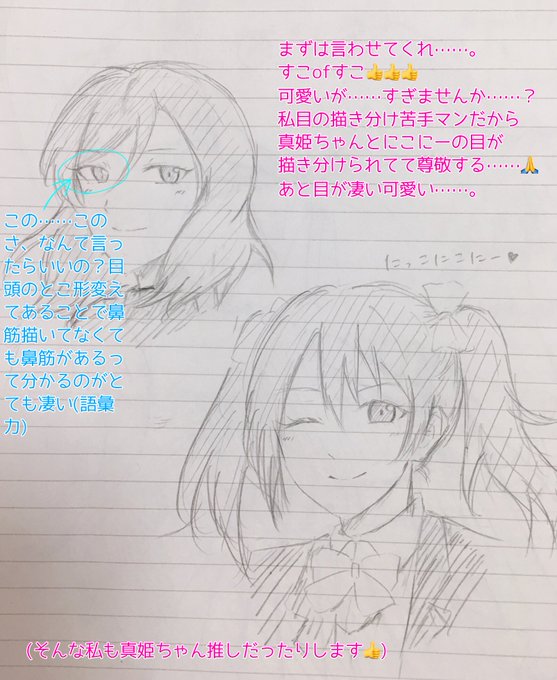 まずは言わせてくれ……。
すこofすこ👍👍👍
可愛いが……すぎませんか……?
私目の描き分け苦手マンだから
真姫ちゃんとにこにーの目が
描き分けられてて尊敬する……🙏
あと目が凄い可愛い……。
この……この
さ、なんて言っ
たらいいの?目
頭のとこ形変え
てあることで鼻
筋描いてなくて
も鼻筋があるっ
て分かるのがと
ても凄い(語彙
力)
にっこにこにー♥
(そんな私も真姫ちゃん推しだったりします👍)